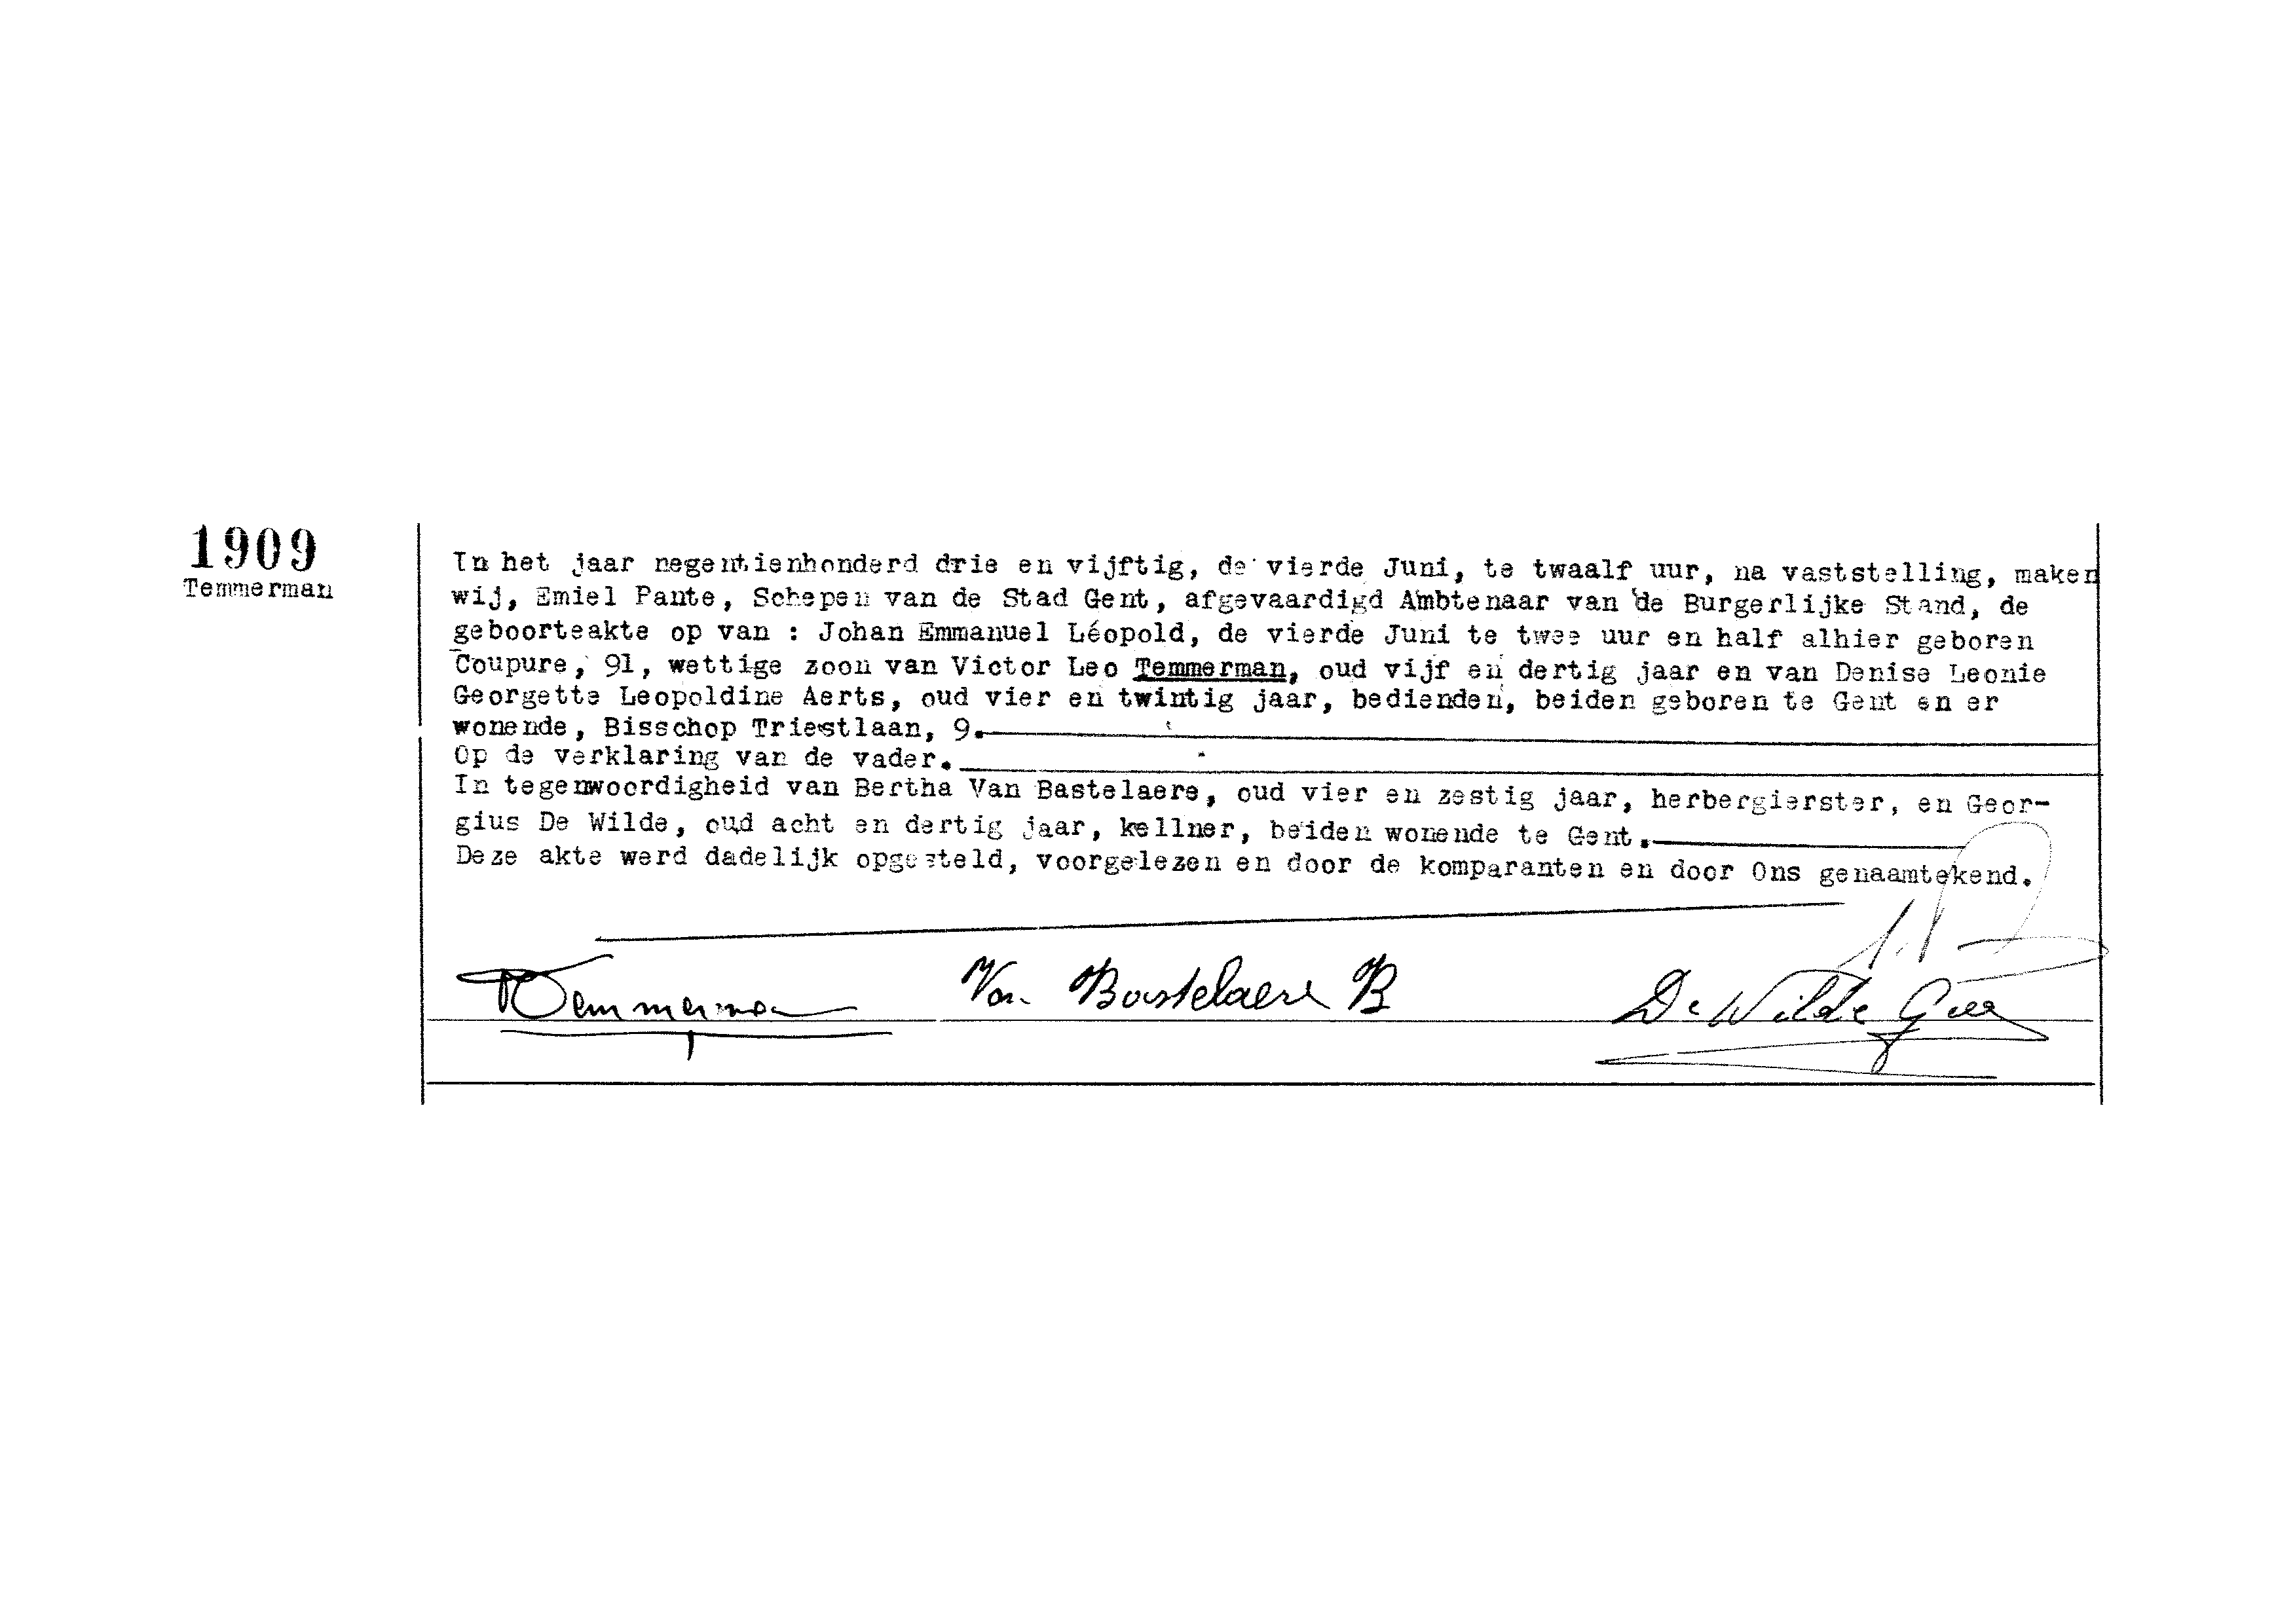 1909
Temmerman
In het jaar negentienhonderd drie en vijftig, de vierde Juni, te twaalf uur, na vaststelling, maken
wij, Emiel Pante, Schepen van de Stad Gent, afgevaardigd Ambtenaar van de Burgerlijke Stand, de
geboorteakte op van : Johan Emmanuel Léopold, de vierde Juni te twee uur en half alhier geboren
Coupure, 91, wettige zoon van Victor Leo Temmerman, oud vijf en dertig jaar en van Denise Leonie
Georgette Leopoldine Aerts, oud vier en twintig jaar, bedienden, beiden geboren te Gent en er
wonende, Bisschop Triestlaan, 9.
Op de verklaring van de vader.
In tegenwoordigheid van Bertha Van Bastelaere, oud vier en zestig jaar, herbergierster, en Geor-
gius De Wilde, oud acht en dertig jaar, kellner, beiden wonende te Gent.
Deze akte werd dadelijk opgesteld, voorgelezen en door de komparanten en door Ons genaamtekend.
Temmerman Van Bastelaere B De Wilde